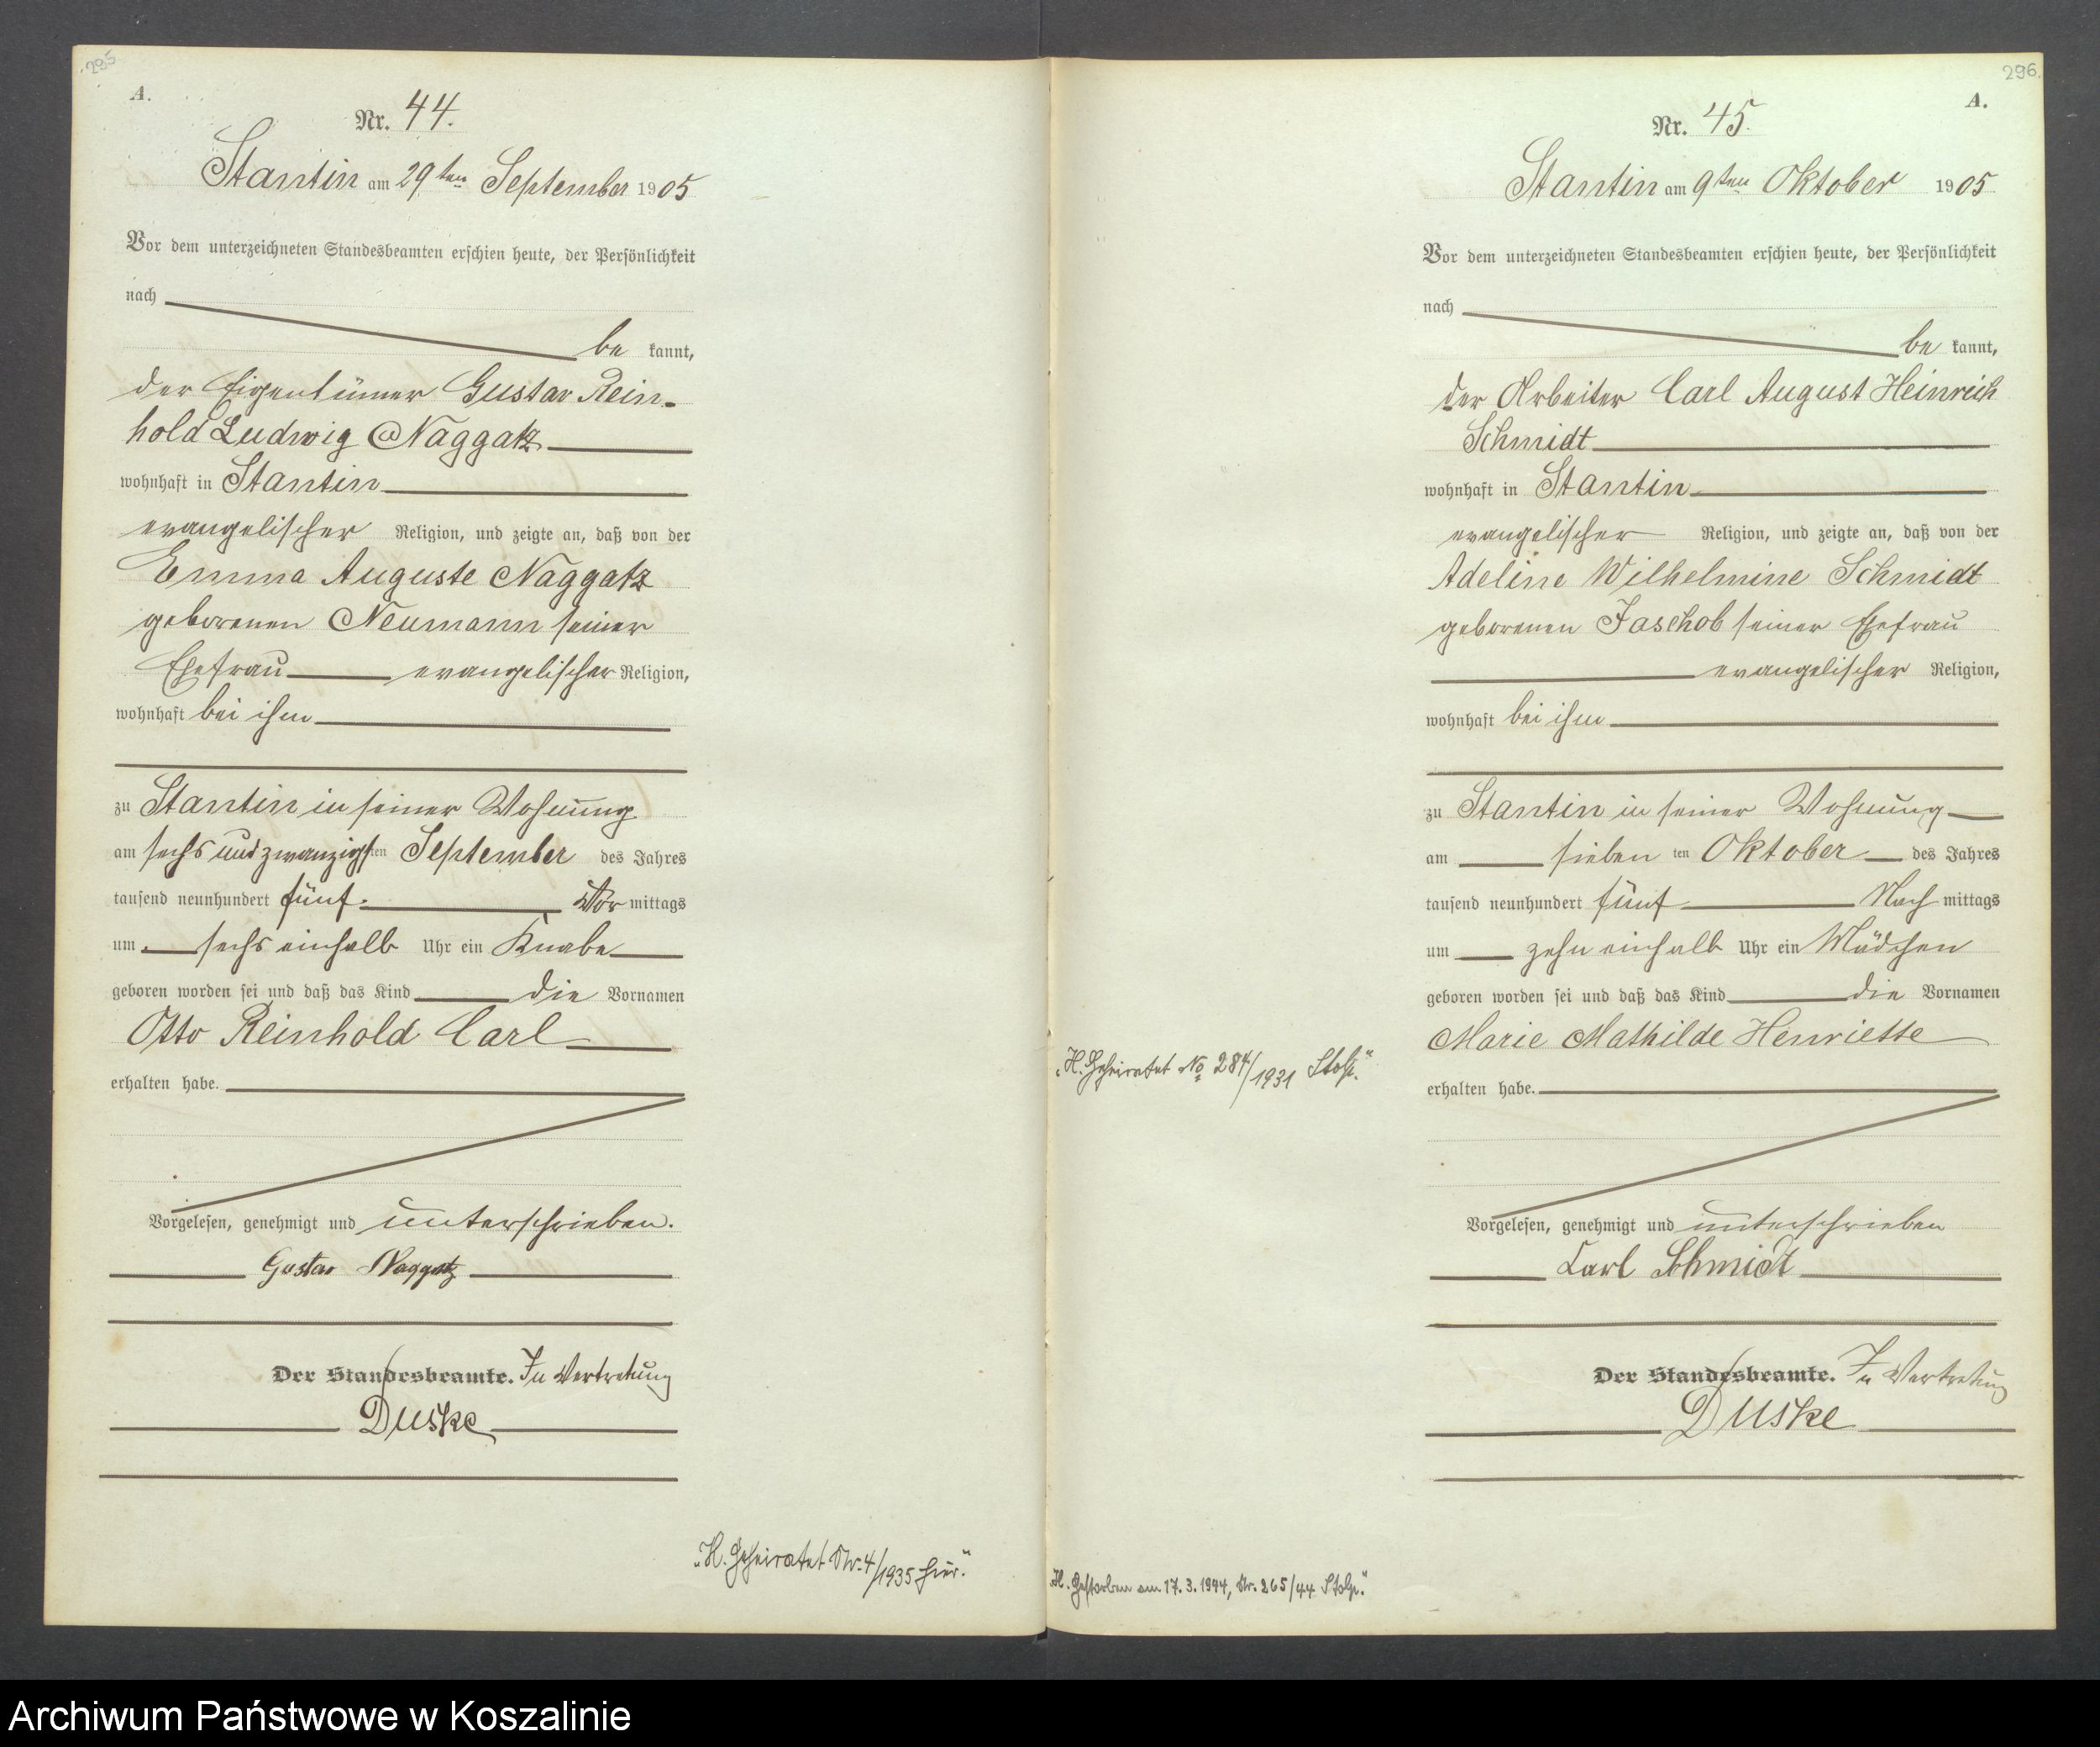 295
A.
Nr. 44.
Stantin am 29ten September 1905
Vor dem unterzeichneten Standesbeamten erschien heute, der Persönlichkeit
nach
be kannt,
der Eigentümer Gustav Rein-
hold Ludwig Naggatz
wohnhaft in Stantin
evangelischer Religion, und zeigte an, daß von der
Emma Auguste Naggatz
geborenen Neumann seiner
Ehefrau evangelischer Religion,
wohnhaft bei ihm
zu Stantin in seiner Wohnung
am sechs und zwanzigsten September des Jahres
tausend neunhundert fünf Vor mittags
um sechs einhalb Uhr ein Knabe
geboren worden sei und daß das Kind die Vornamen
Otto Reinhold Carl
erhalten habe.
Vorgelesen, genehmigt und unterschrieben.
Gustav Naggatz
Der Standesbeamte. In Vertretung
Duske
„H. Geheiratet Nr. 4/1935 hier."
296.
A.
Nr. 45.
Stantin am 9ten Oktober 1905
Vor dem unterzeichneten Standesbeamten erschien heute, der Persönlichkeit
nach
be kannt,
der Arbeiter Carl August Heinrich
Schmidt
wohnhaft in Stantin
evangelischer Religion, und zeigte an, daß von der
Adeline Wilhelmine Schmidt
geborenen Jaschob seiner Ehefrau
evangelischer Religion,
wohnhaft bei ihm
zu Stantin in seiner Wohnung
am sieben ten Oktober des Jahres
tausend neunhundert fünf Nach mittags
um zehn einhalb Uhr ein Mädchen
geboren worden sei und daß das Kind die Vornamen
Marie Mathilde Henriette
erhalten habe.
Vorgelesen, genehmigt und unterschrieben
Carl Schmidt
Der Standesbeamte. In Vertretung
Duske
„H. Geheiratet No 284/1931 Stolp."
„H. Gestorben am 17.3.1944, Nr. 265/44 Stolp."
Archiwum Państwowe w Koszalinie